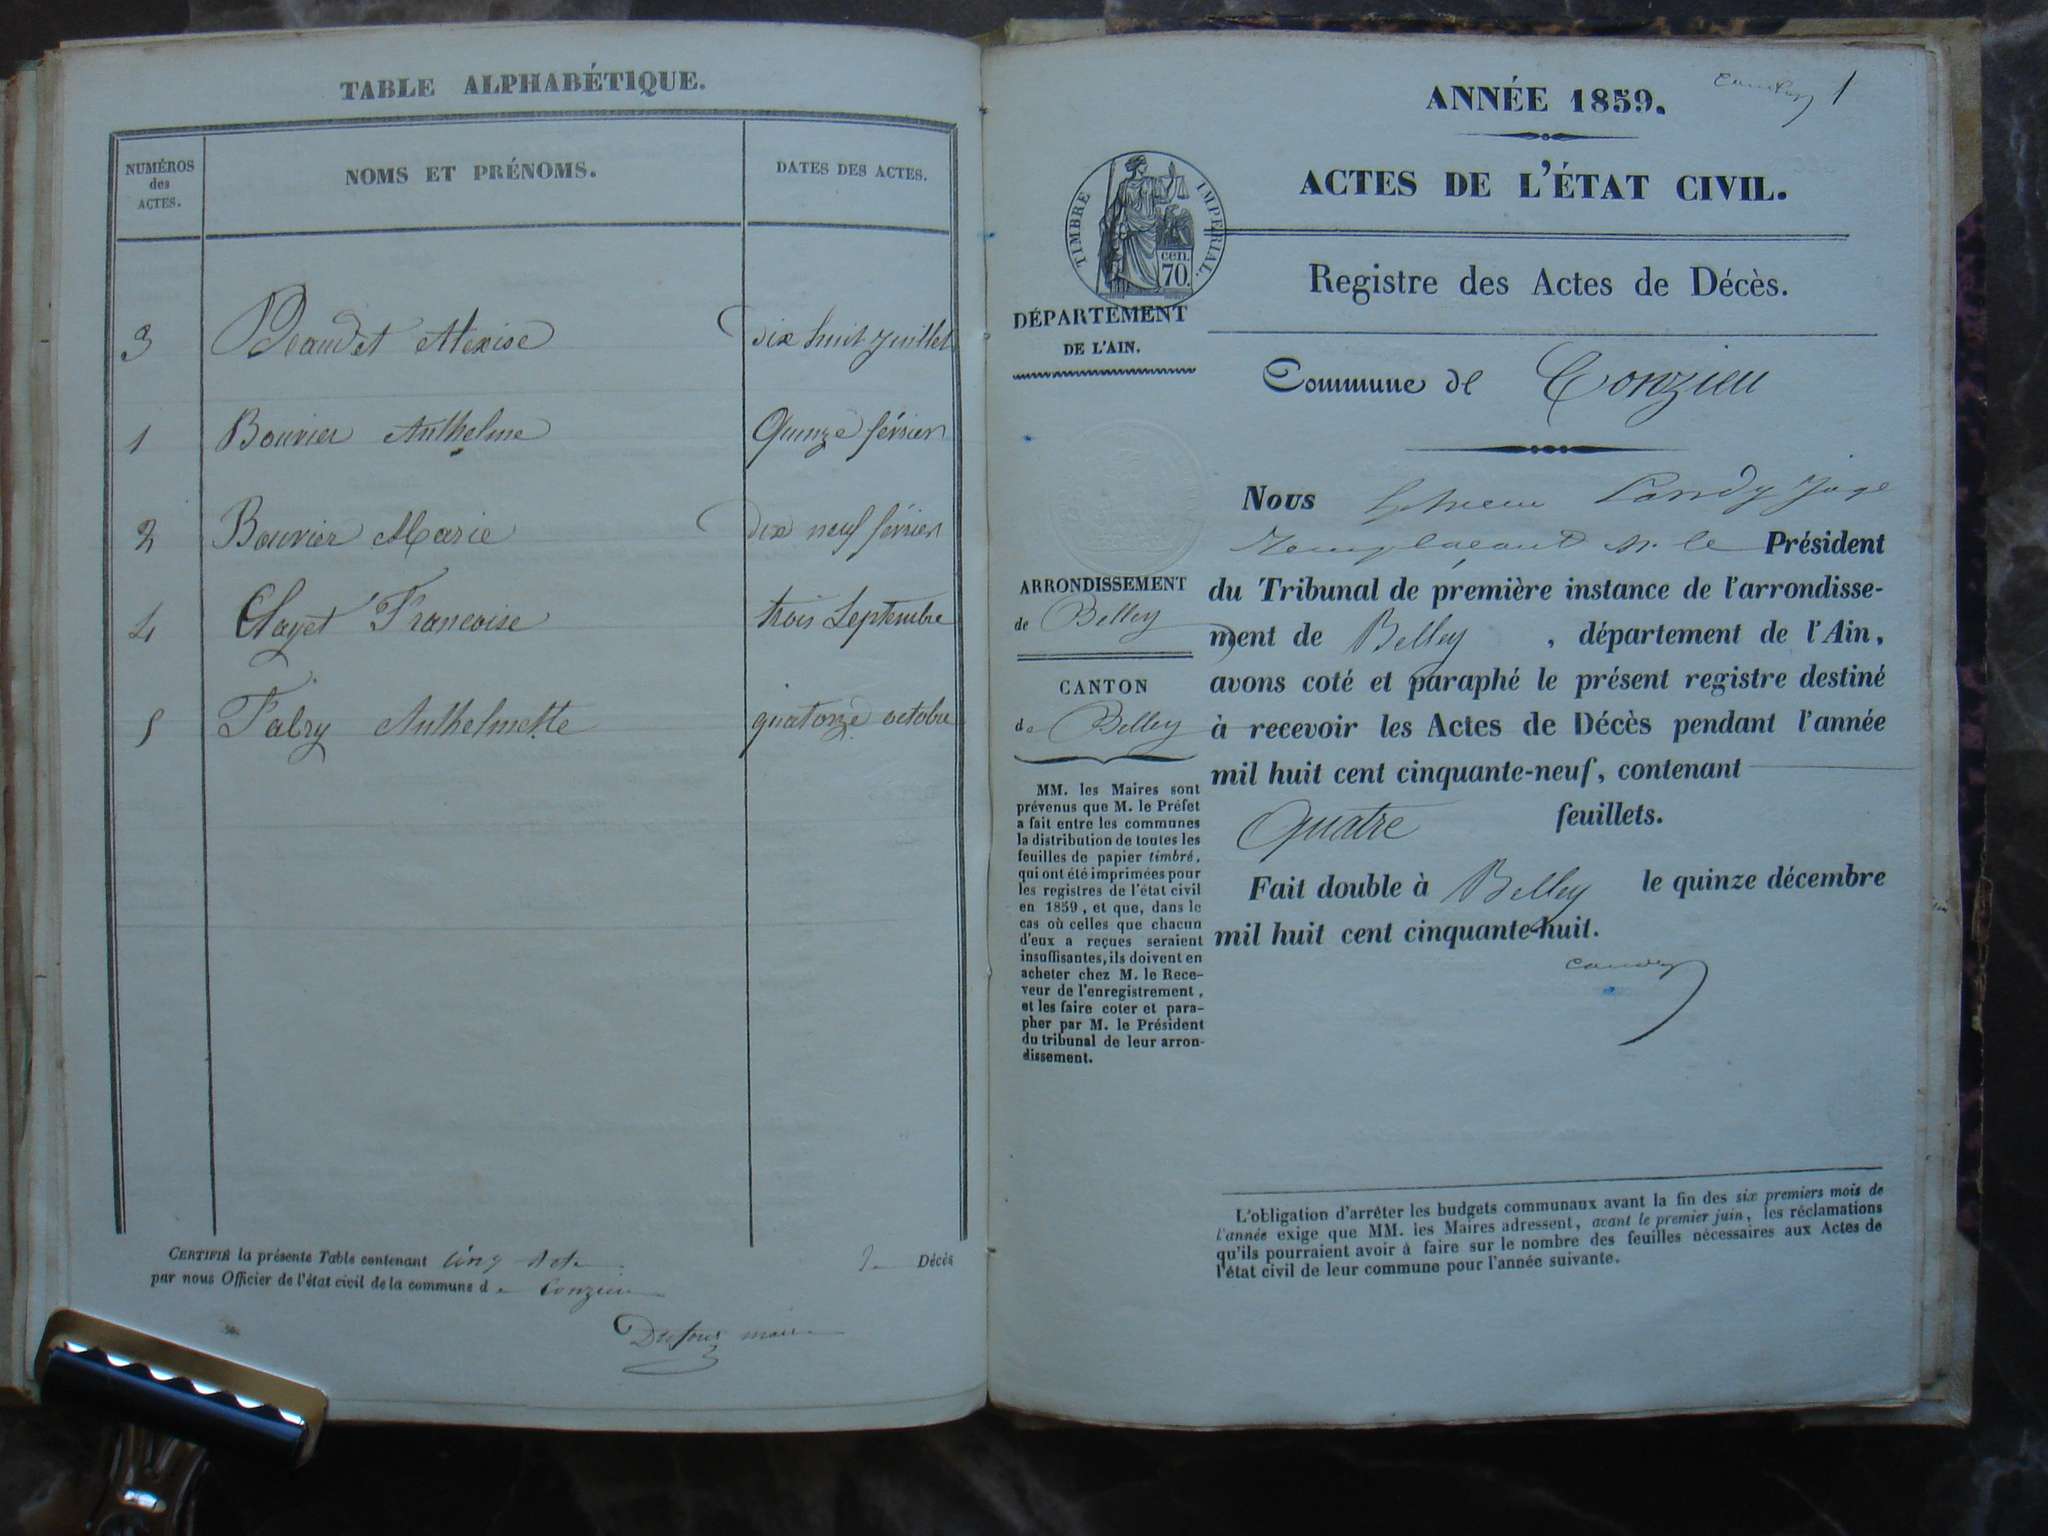 TABLE ALPHABÉTIQUE.
NUMÉROS des ACTES.
NOMS ET PRÉNOMS.
DATES DES ACTES.
3 Beaudet Alexise dix huit juillet
1 Bouvier Anthelme Quinze février
2 Bouvier Marie dix neuf février
4 Clayet Francoise trois Septembre
5 Fabry Anthelmette quatorze octobre
CERTIFIÉ la présente Table contenant cinq actes Décès
par nous Officier de l'état civil de la commune de Conzieu
Dufour maire
1
ANNÉE 1859.
ACTES DE L'ÉTAT CIVIL.
TIMBRE IMPERIAL.
cen.
70.
Registre des Actes de Décès.
DÉPARTEMENT
DE L'AIN.
Commune de Conzieu
ARRONDISSEMENT
de Belley
CANTON
de Belley
MM. les Maires sont
prévenus que M. le Préfet
a fait entre les communes
la distribution de toutes les
feuilles de papier timbré,
qui ont été imprimées pour
les registres de l'état civil
en 1859, et que, dans le
cas où celles que chacun
d'eux a reçues seraient
insuffisantes, ils doivent en
acheter chez M. le Rece-
veur de l'enregistrement,
et les faire coter et para-
pher par M. le Président
du tribunal de leur arron-
dissement.
Nous Juge
Remplacant M. le Président
du Tribunal de première instance de l'arrondisse-
ment de Belley, département de l'Ain,
avons coté et paraphé le présent registre destiné
à recevoir les Actes de Décès pendant l'année
mil huit cent cinquante-neuf, contenant
Quatre feuillets.
Fait double à Belley le quinze décembre
mil huit cent cinquante-huit.
L'obligation d'arrêter les budgets communaux avant la fin des six premiers mois de
l'année exige que MM. les Maires adressent, avant le premier juin, les réclamations
qu'ils pourraient avoir à faire sur le nombre des feuilles nécessaires aux Actes de
l'état civil de leur commune pour l'année suivante.